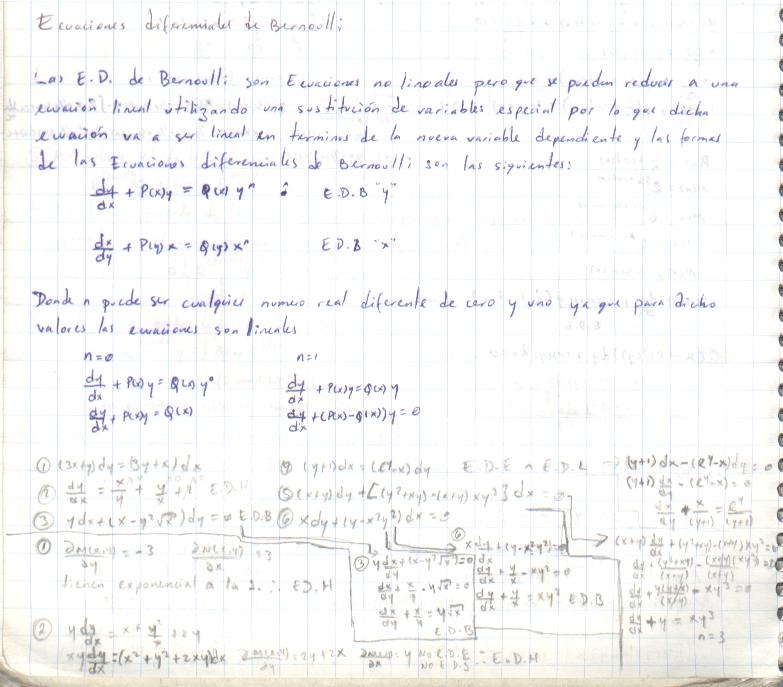 Ecuaciones diferenciales de Bernoulli
Las E.D. de Bernoulli son Ecuaciones no lineales pero que se puedan reducir a una
ecuación lineal utilizando una sustitución de variables especial por lo que dicha
ecuación va a ser lineal en terminos de la nueva variable dependiente y las formas
de las Ecuaciones diferenciales de Bernoulli son las siguientes:
dy/dx + P(x)y = Q(x) y^n E.D.B "y"
dx/dy + P(y)x = Q(y)x^n E.D.B "x"
Donde n puede ser cualquier numero real diferente de cero y uno ya que para dicho
valores las ecuaciones son lineales
n=0 n=1
dy/dx + P(x)y = Q(x)y° dy/dx + P(x)y=Q(x)y
dy/dx + P(x)y = Q(x) dy/dx +(P(x)-Q(x))y=0
① (3x+y)dy=(3y+x)dx ④ (y+1)dx=(e^y-x)dy E.D.E ∩ E.D.L → (y+1)dx-(e^y-x)dy=0
② dy/dx = x/y + y/x + E.D.H ⑤ (x+y)dy+[(y²+xy)-(x+y)xy³]dx=0 (y+1)dx/dy-(e^y-x)=0
③ ydx+(x-y²√x)dy=0 E.D.B ⑥ xdy+(y-x²y²)dx=0 dx/dy + x/(y+1) = e^y/(y+1)
① ∂M(x,y)/∂y = -3 ∂N(x,y)/∂x = 3
tienen exponencial a la 1. ∴ E.D.H
③ y dx/dy +(x-y²√x)=0
dx/dy + x/y - y√x=0
dx/dy + x/y = y√x
E.D.B
⑥ x dy/dx + (y-x²y²)=0
dy/dx + y/x - xy²=0
dy/dx + y/x = xy² E.D.B
(x+y) dy/dx + (y²+xy)-(x+y)xy³=0
dy/dx + (y²+xy)/(x+y) - (x+y)/(x+y) xy³=0
dy/dx + y(y+x)/(x+y) - xy³ =0
dy/dx + y = xy³
n=3
② y dy/dx = x + y²/x + 2y
xy dy/dx =(x²+y²+2xy)dx ∂M(x,y)/∂y = 2y+2x = y NO E.D.E
NO E.D.S ∴ E.D.H